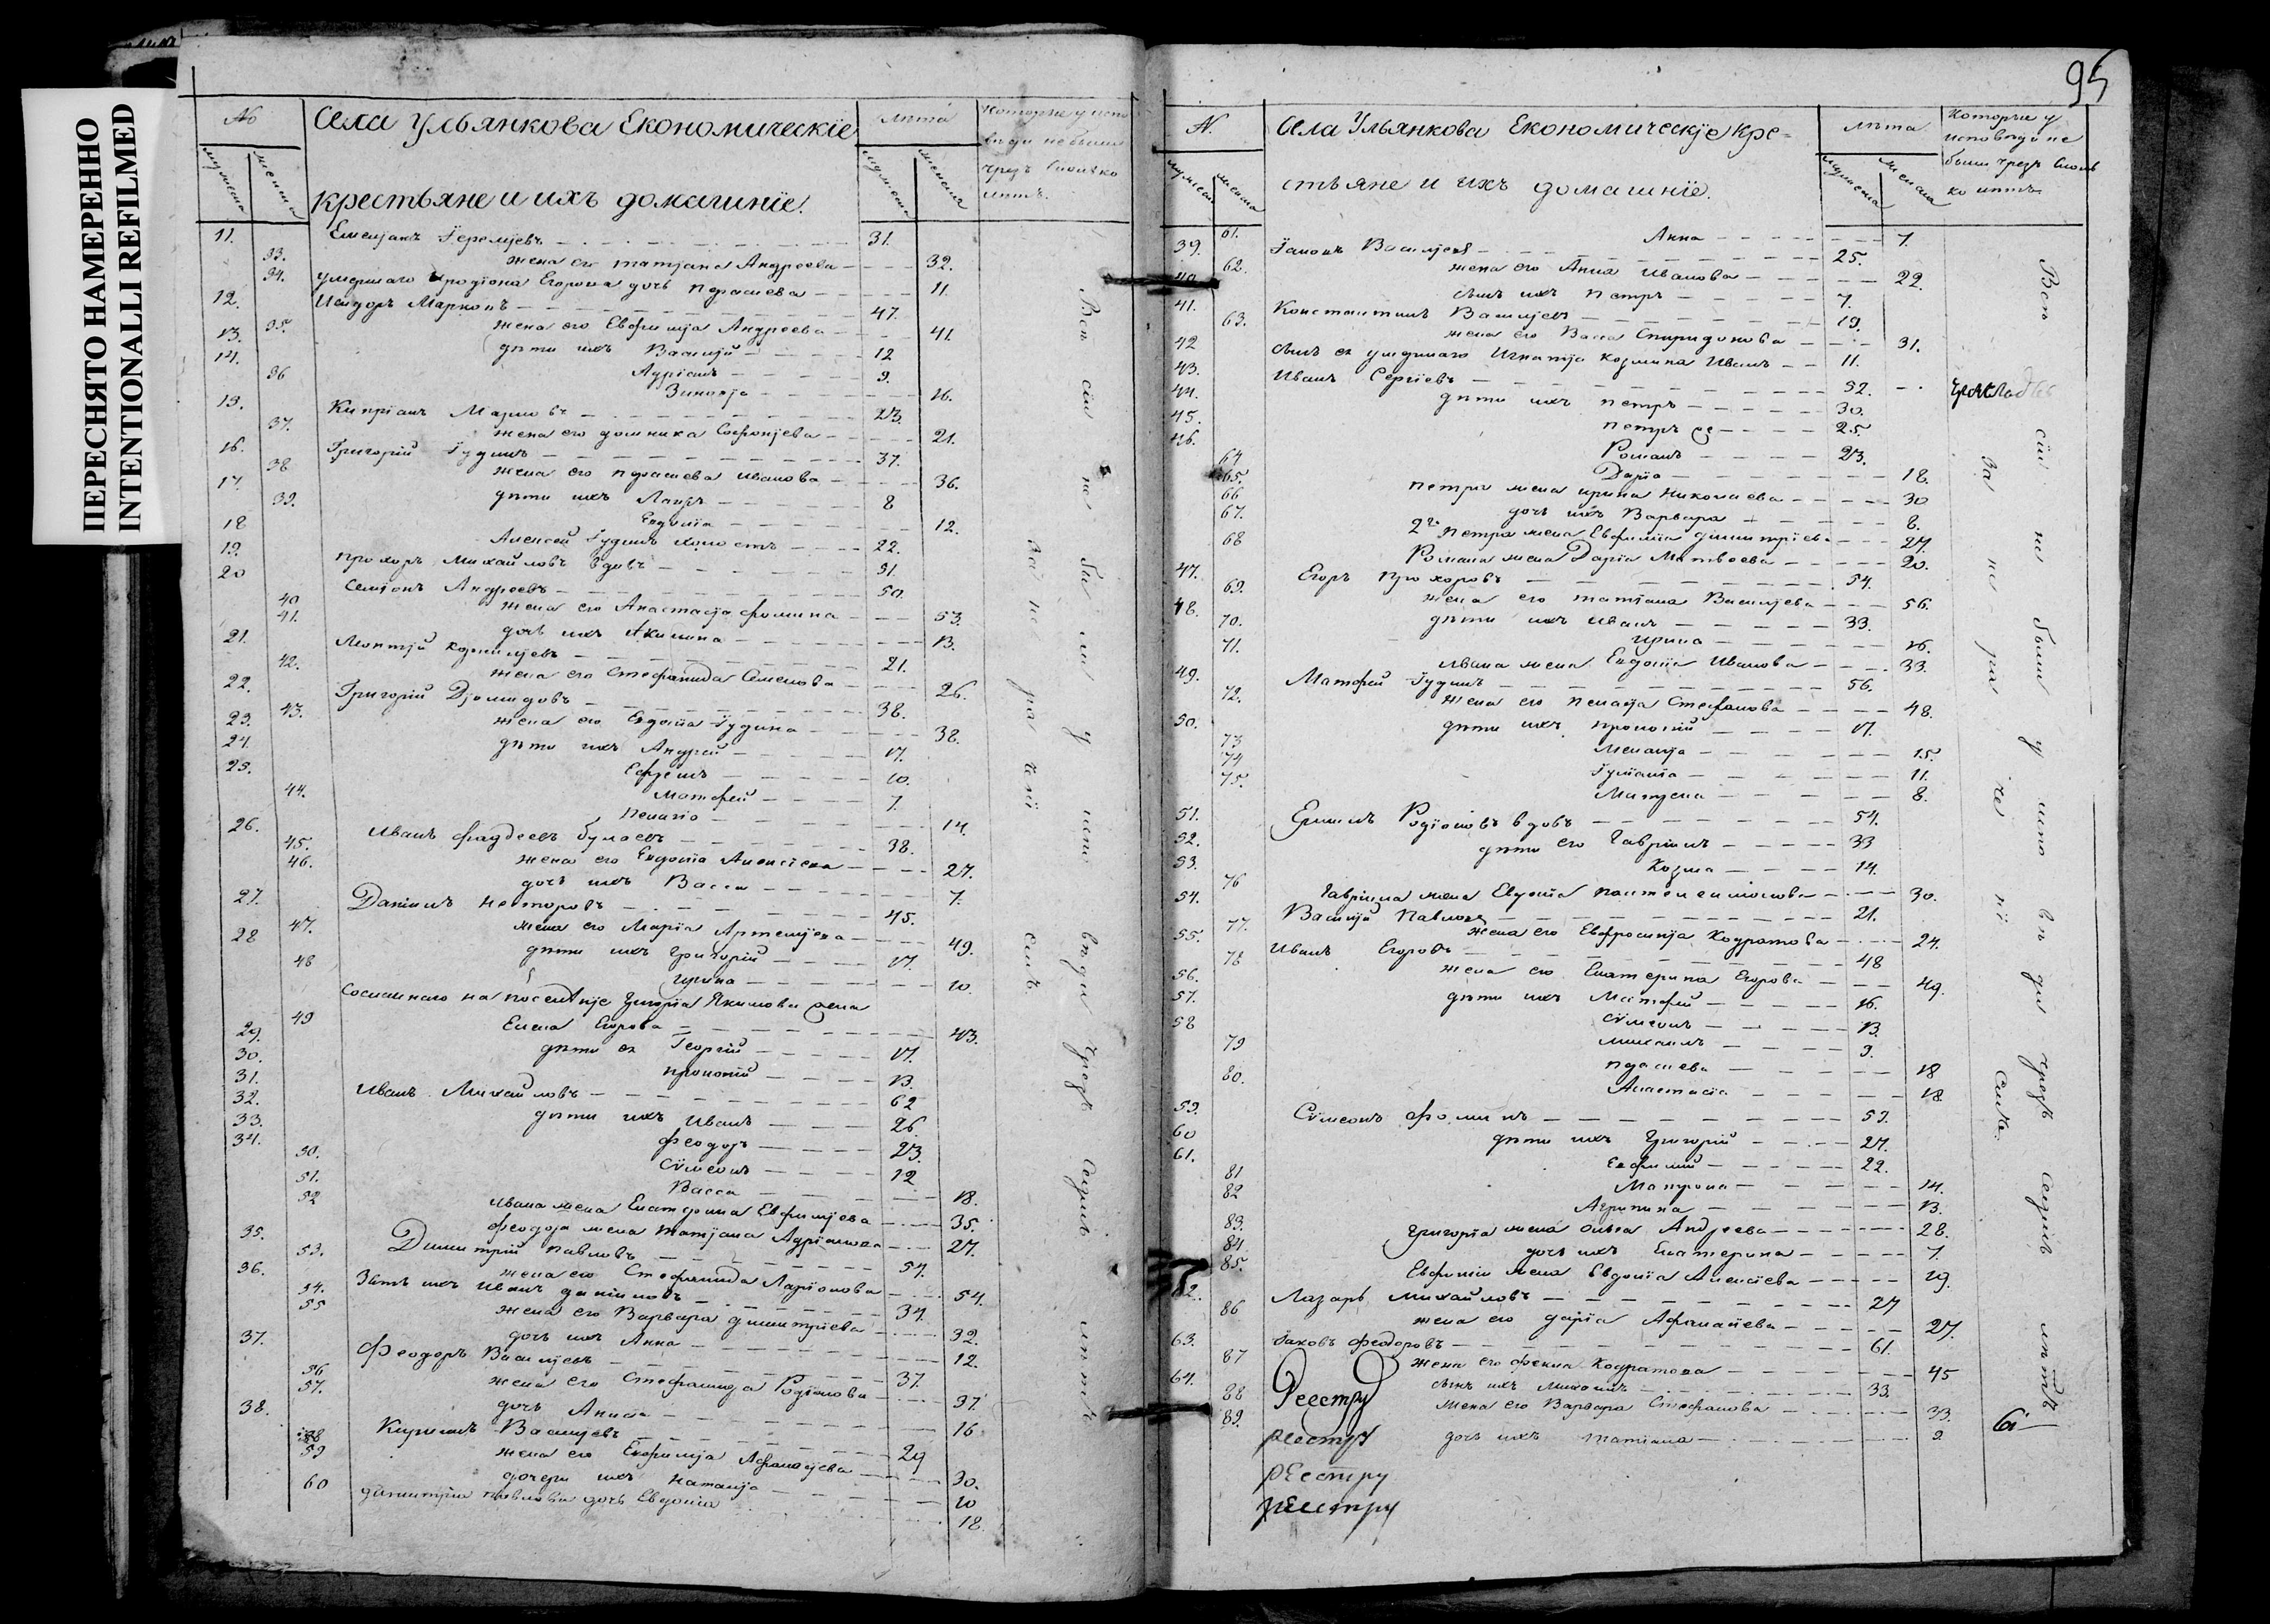 ПЕРЕСНЯТО НАМЕРЕННО
INTENTIONALLI REFILMED
№
мужеска
женска
Села Ульянкова Економическїе
крестьяне и ихъ домашнїе.
лѣта
мужеска
женска
Которые у испо
веди не были
чрезъ сколько
лѣтъ.
11. Емелїанъ Іеремїевъ 31.
33. жена его татїана Андреева 32.
34. умершаго Иродїона Егорова дочь параскева 11.
12. Исидоръ Марковъ 47.
35. жена его Евфимїа Андреева 41.
13. дѣти ихъ Василїй 12
14. Адрїанъ 9.
36 Зиновїа 16.
15. Кипрїанъ Марковъ 23.
37. жена его домника Софонїева 21.
16. Григорїй Іудинъ 37.
38 жена его параскева иванова 36.
17. дѣти ихъ Лавръ 8
39. Евдокїа 12.
18 Алексей Іудинъ холостъ 22.
19. прохоръ михайловъ вдовъ 31.
20 Семїонъ Андреевъ 50.
40 жена его Анастасїа фомина 53.
41. дочь ихъ Акилина 13.
21. Леонтїй корнилїевъ 21.
42. жена его Стефанида Семенова 26.
22. Григорїй Дїомидовъ 38.
43. жена его Евдокїа Іудина 38.
23. дѣти ихъ Андрей 17.
24. Ефремъ 10.
25. Матфей 7.
44. Пелагїа 14.
26. Иванъ фаддеевъ 38.
45. жена его Евдокїа Алексїева 27.
46. дочь ихъ Васса 7.
27. Данїилъ Несторовъ 45.
47. жена его Марїа Артемїева 49.
28 дѣти ихъ Григорїй 17.
48 ирина 10.
Сосланнаго на поселенїе Григорїа Якимова жена
49 Елена Егорова 43.
29. дѣти ея Георгїй 17.
30. прокопїй 13.
31. Иванъ Михайловъ 62
32. дѣти ихъ Иванъ 26.
33. феодоръ 23.
34. Сѵмеонъ 12
50. Васса 18.
51. ивана жена Екатерина Евфимїева 35.
52 феодора жена татїана Адрїанова 27.
35. Димитрїй павловъ 57.
53. жена его Стефанида Ларїонова 54.
36. Зять ихъ Иванъ данїиловъ 37.
54. жена его Варвара димитрїева 32.
55 дочь ихъ Анна 12.
37. Феодоръ Василїевъ 37.
56 жена его Стефанида Родїонова 37.
57. дочь Анисїа 16
38. Кирилъ Василїевъ 29
58 жена его Евфимїа Афанасїева 30.
59 дочери ихъ наталїа 10
60 димитрїа павлова дочь Евдокїа 18.
Всѣ сїи не были у исповѣди чрезъ седмь лѣтъ
за нераченїемъ
95
№.
мужеска
женска
Села Ульянкова Економическїе кре=
стьяне и ихъ домашнїе.
лѣта
мужеска
женска
Которые у
исповѣди не
были чрезъ сколь
ко лѣтъ.
61. Анна 7.
39. Василїевъ 25.
62. жена его Анна Иванова 22.
40. сынъ ихъ петръ 7.
41. Константинъ Василїевъ 19.
63. жена его Васса Спиридонова 31.
42 сынъ ея умершаго Игнатїа козмина Иванъ 11.
43. Иванъ Сергїевъ 52.
44. дѣти ихъ петръ 30.
45. петръ 25.
46. Романъ 23.
64 Дарїа 18.
65. петра жена ирина Николаева 30
66 дочь ихъ Варвара 8.
67. 2го петра жена Евфимїа димитрїева 27.
68 Романа жена Дарїа Матвеева 20.
47. Егоръ прохоровъ 54.
69. жена его татїана Василїева 56.
48. дѣти ихъ иванъ 33.
70. ирина 16.
71. ивана жена Евдокїа Иванова 33.
49. Матфей Іудинъ 56.
72. жена его пелагїа Стефанова 48.
50. дѣти ихъ прокопїй 17.
73 Меланїа 15.
74 Іулїанїа 11.
75. Матрена 8.
51. Ермилъ Родїоновъ вдовъ 54.
52. дѣти его Гаврїилъ 33
53. Козма 14.
76 Гаврїила жена Евдокїа пантелеимонова 30.
54. Василїй Павловъ 21.
77. жена его Евфросинїа Кодратова 24.
55. Иванъ Егоровъ 48
78 жена его Екатерина Егорова 49.
56. дѣти ихъ Матфей 16.
57. сѵмеонъ 13.
58 михаилъ 9.
79 параскева 18
80. Анастасїа 18.
59. Сѵмеонъ фоминъ 57.
60 дѣти ихъ Григорїй 27.
61. Евфимїй 22.
81 Матрона 14.
82 Агрипина 13.
83. Григорїа жена Андреева 28.
84. дочь ихъ Екатерина 7.
85. Евфимїа жена Евдокїа Алексїева 19.
62. Лазарь михайловъ 27
86 жена его дарїа Афанасїева 27.
63. Іаковъ феодоровъ 61.
87 жена его фекла Кодратова 45
64. сынъ ихъ михаилъ 33.
88 жена его Варвара Стефанова 33.
89. дочь ихъ татїана 9.
Реестру
реестру
рЕестру
рЕестру
Всѣ сїи не были у исповѣди чрезъ седмь лѣтъ
за нераченїемъ